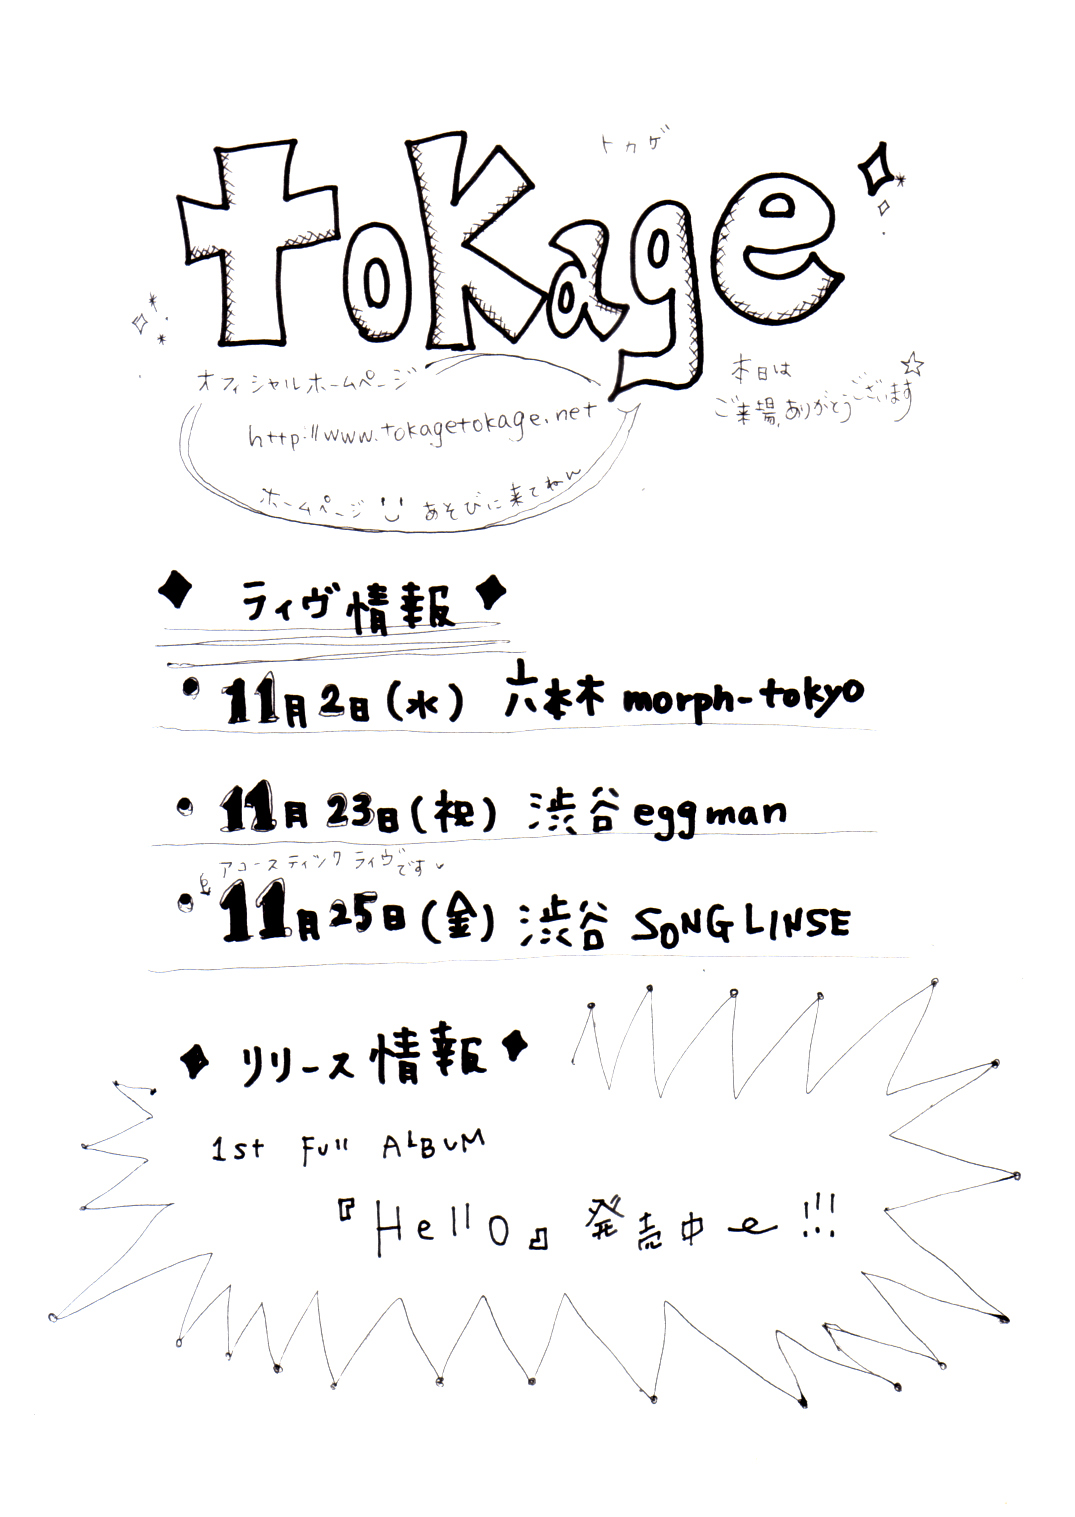 トカゲ
tokage
本日は
ご来場、ありがとうございます☆
オフィシャルホームページ
http://www.tokagetokage.net
ホームページ あそびに来てねん
◆ ライヴ情報 ◆
● 11月2日(水) 六本木 morph-tokyo
● 11月23日(祝) 渋谷 eggman
アコースティックライヴです
● 11月25日(金) 渋谷 SONG LINSE
◆ リリース情報 ◆
1st Full ALBUM
『Hello』発売中e!!!